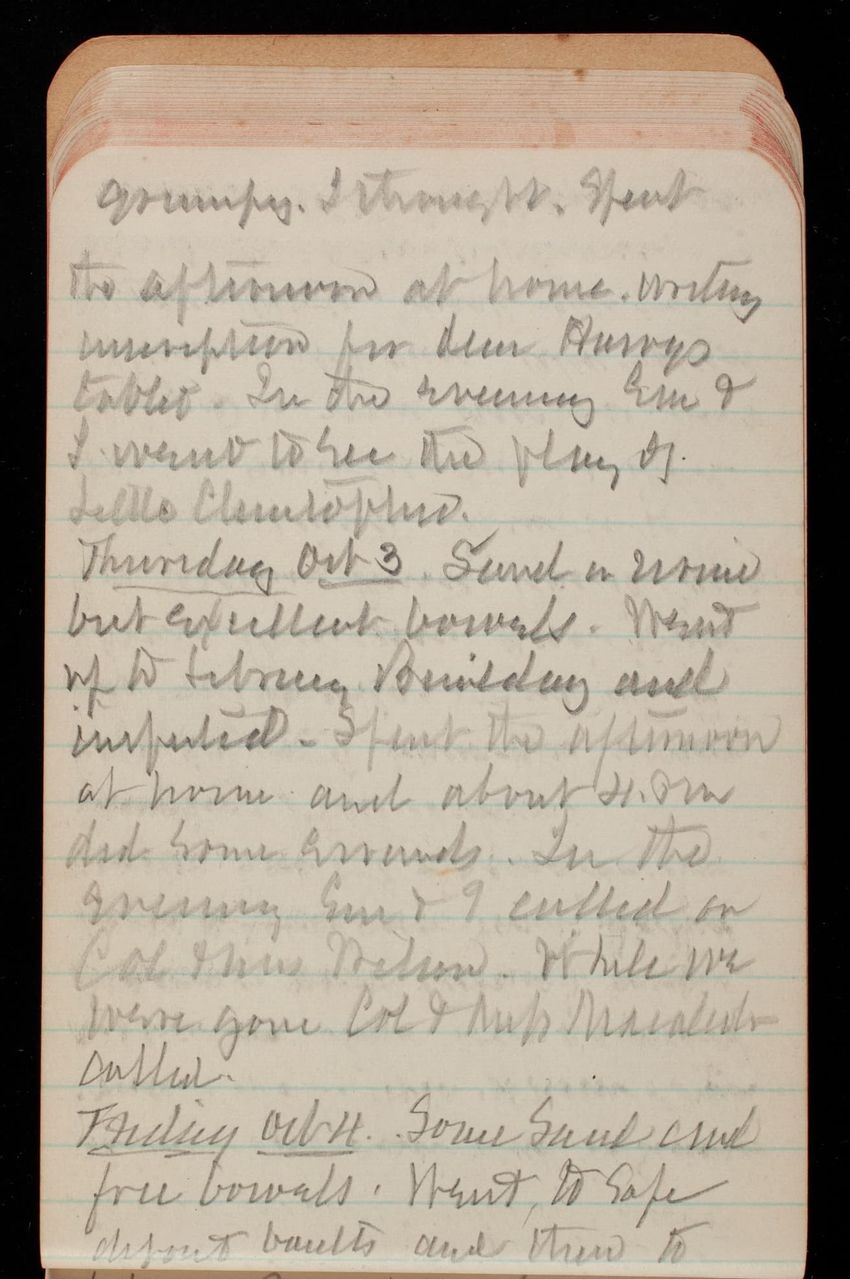 grumpy. I thought. Spent
the afternoon at home. writing
inscription for dear Harrys
tablet. In the evening Em &
I went to see the play of
Little Christopher.
Thursday Oct 3. Sand in urine
but excellent bowels. Went
up to Library Building and
inspected. Spent the afternoon
at home and about 4. P m
did some errands. In the
evening Em & I called on
Col & Mrs Wilson. While we
were gone Col & Miss
called.
Friday Oct 4. Some Sand and
free bowels. Went, to Safe
deposit vaults and then to